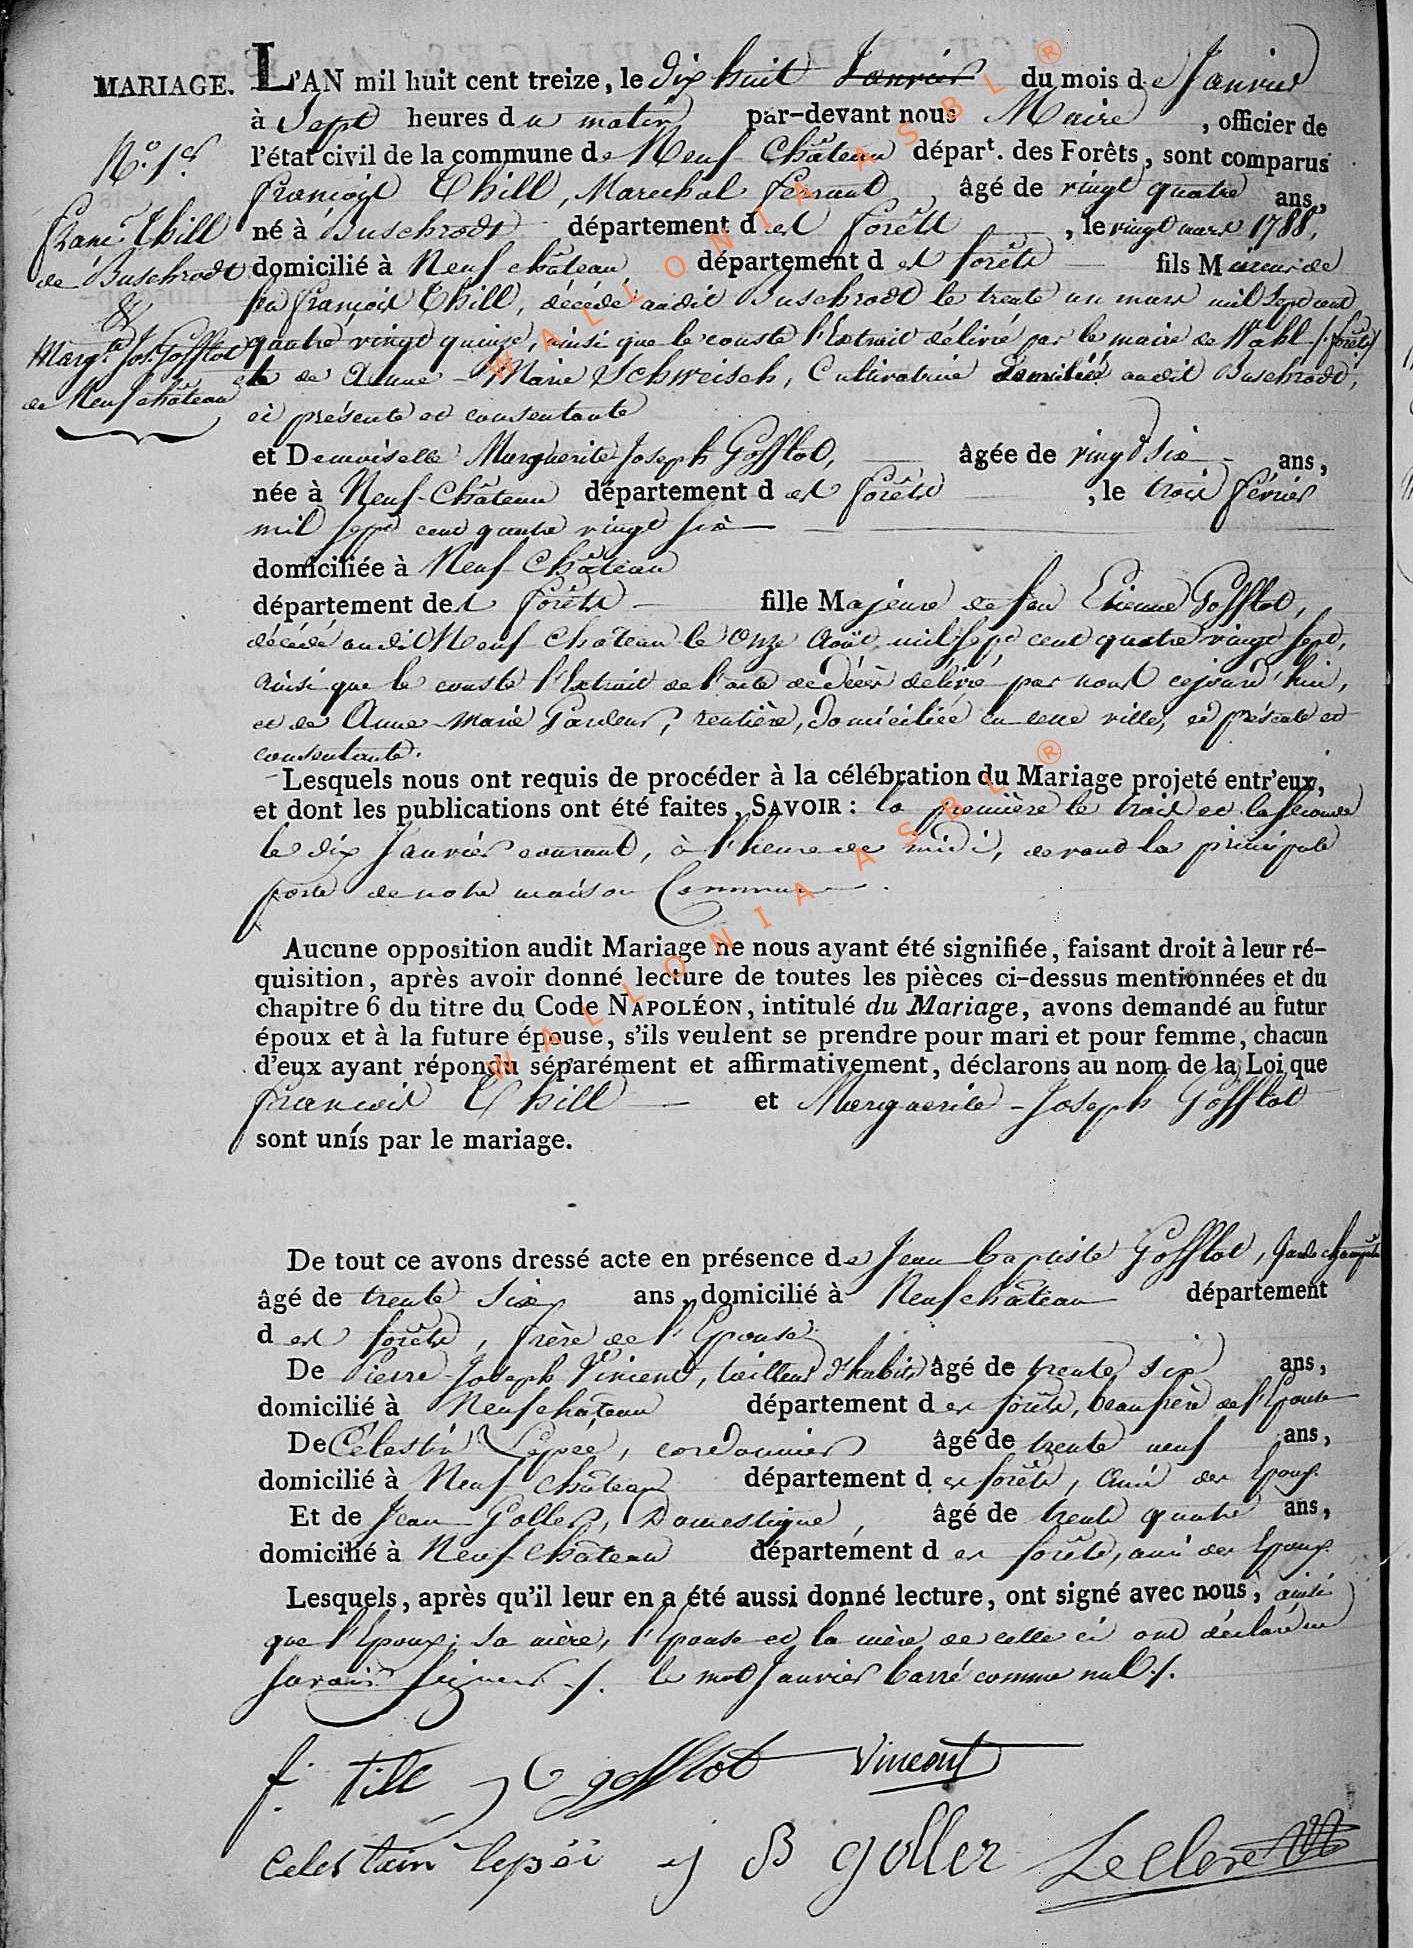 MARIAGE.
L'AN mil huit cent treize, le dix huit Janvier du mois de Janvier
à Sept heures du matin par-devant nous Maire, officier de
l'état civil de la commune de Neuf-Château départ. des Forêts, sont comparus
François Thill, Marechal ferrant âgé de vingt quatre ans,
né à Buschrodt département des Forêts, le vingt mars 1788,
domicilié à Neufchâteau département des forêts fils Mineur de
feu françois Thill, décédé audit Buschrodt le trente un mars mil sept cent
quatre vingt quinze, ainsi que le conste l'Extrait délivré par le maire de Wahl /:forêts/
& de Anne-Marie Schweisch, Cultivatrice Domiciliée audit Buschrodt,
ci présente et consentante
et Demoiselle Marguerite Joseph Gofflot, âgée de vingt six ans,
née à Neuf-Château département des forêts, le trois février
mil sept cent quatre vingt six
domiciliée à Neuf Château
département des forêts fille Majeure de feu Etienne Gofflot,
décédé audit Neufchâteau le Onze Août mil sept cent quatre vingt sept,
ainsi que le conste l'Extrait de l'acte de décès délivré par nous cejourd'hui,
et de Anne-Marie rentière, domiciliée en cette ville, ci présente et
consentante.
Lesquels nous ont requis de procéder à la célébration du Mariage projeté entr'eux,
et dont les publications ont été faites, SAVOIR : la première le trois et la seconde
le dix Janvier courant, à l'heure de midi, devant la principale
porte de notre maison Commune.
Aucune opposition audit Mariage ne nous ayant été signifiée, faisant droit à leur ré-
quisition, après avoir donné lecture de toutes les pièces ci-dessus mentionnées et du
chapitre 6 du titre du Code NAPOLÉON, intitulé du Mariage, avons demandé au futur
époux et à la future épouse, s'ils veulent se prendre pour mari et pour femme, chacun
d'eux ayant répondu séparément et affirmativement, déclarons au nom de la Loi que
françois Thill et Marguerite-Joseph Gofflot
sont unis par le mariage.
De tout ce avons dressé acte en présence de Jean baptiste Gofflot, Garde champêtre
âgé de trente six ans, domicilié à Neufchâteau département
des forêts, frère de l'Epouse.
De Pierre Joseph Vincent, tailleur d'habits âgé de trente six ans,
domicilié à Neufchâteau département des forêts, beau frère de l'Epouse
De Célestin Lepéé, cordonnier âgé de trente neuf ans,
domicilié à Neuf-Château département des forêts, ami des Epoux
Et de Jean Goller, Domestique, âgé de trente quatre ans,
domicilié à Neuf-Château département des forêts, ami des Epoux
Lesquels, après qu'il leur en a été aussi donné lecture, ont signé avec nous, ainsi
que l'Epoux; sa mère, l'Epouse et la mère de celle ci ont déclaré ne
savoir signer ./. le mot Janvier barré comme nul ./.
f. till gofflot Vincent
Celestain lepéé j B goller Leclere
N.° 1.er
Franc. Thill
de Buschrodt
&
Marg.te Jos. Gofflot
de Neufchâteau
WALLONIA ASBL ®
WALLONIA ASBL ®